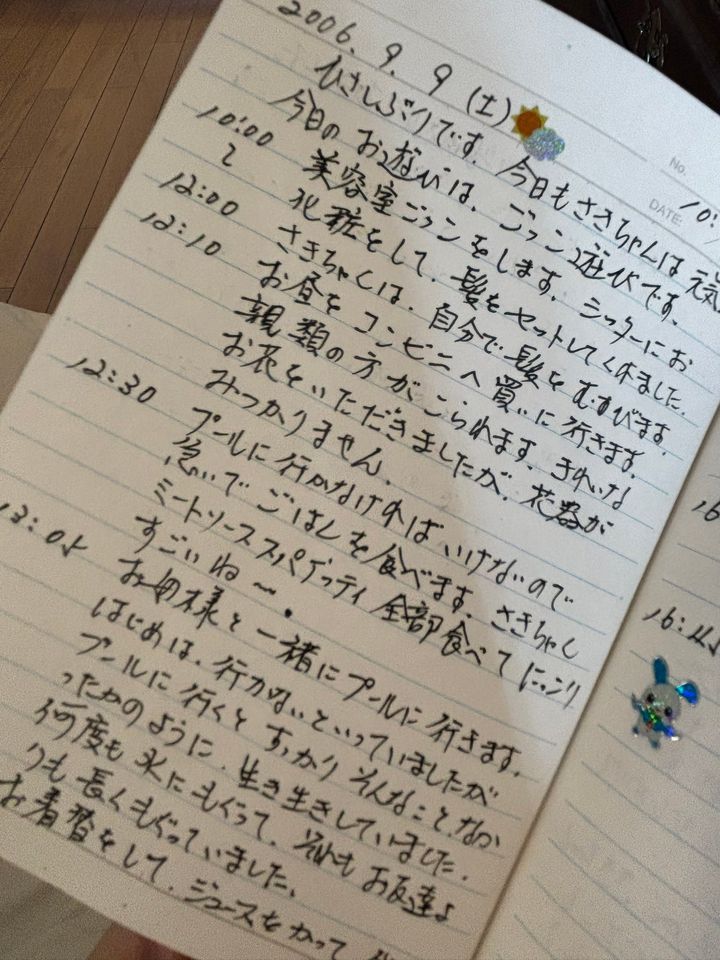 2006. 9. 9 (土)
ひさしぶりです。今日もさきちゃんは元気
今日のお遊びは、ごっこ遊びです。
10:00 美容室ごっこをします。シッターにお
〜 化粧をして、髪をセットしてくれました。
12:00 さきちゃんは、自分で髪をむすびます。
12:10 お昼をコンビニへ買いに行きます。
親類の方がこられます。きれいな
お花をいただきましたが、花器が
みつかりません。
12:30 プールに行かなければいけないので
急いでごはんを食べます。さきちゃん
ミートソーススパゲッティ全部食べてにっこり
すごいね〜。
お母様と一緒にプールに行きます。
はじめは、行かないといっていましたが
プールに行くとすっかりそんなことなか
ったかのように、生き生きしていました。
何度も水にもぐって、それもお友達よ
りも長くもぐっていました。
お着替をして、ジュースをかって
No.
DATE
10:
16
16:45